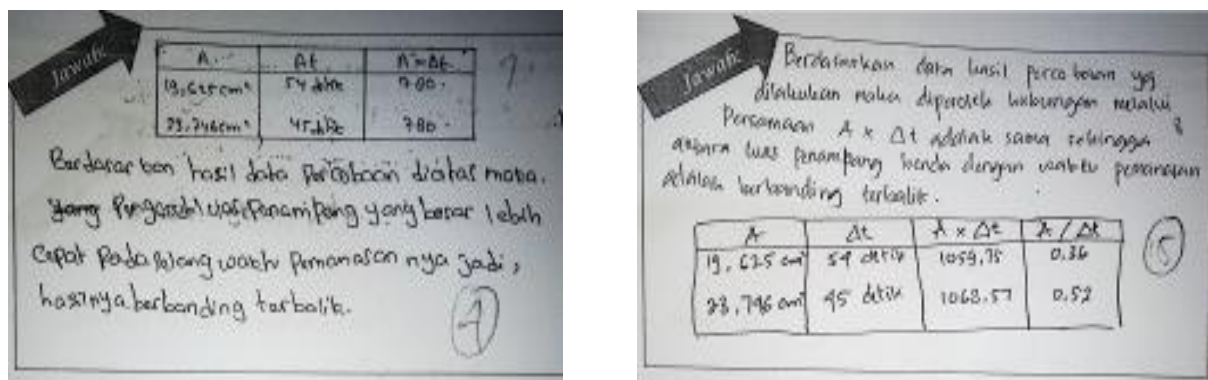 Jawab:
A A t A x Δt
19,625 cm² 54 detik 780
23,746 cm² 45 detik 780
?
Berdasarkan hasil data Percobaan diatas maka.
Yang Pengaruh luas Penampang yang besar lebih
Cepat Pada selang waktu Pemanasan nya jadi,
hasilnya berbanding terbalik.
4
Jawab:
Berdasarkan data hasil percobaan yg
dilakukan maka diperoleh hubungan melalui
Persamaan A x Δt adalah sama sehingga
antara luas penampang benda dengan waktu pemanasan
adalah berbanding terbalik.
A Δt A x Δt A / Δt
19,625 cm² 54 detik 1059,75 0,36
23,746 cm² 45 detik 1068,57 0,52
5